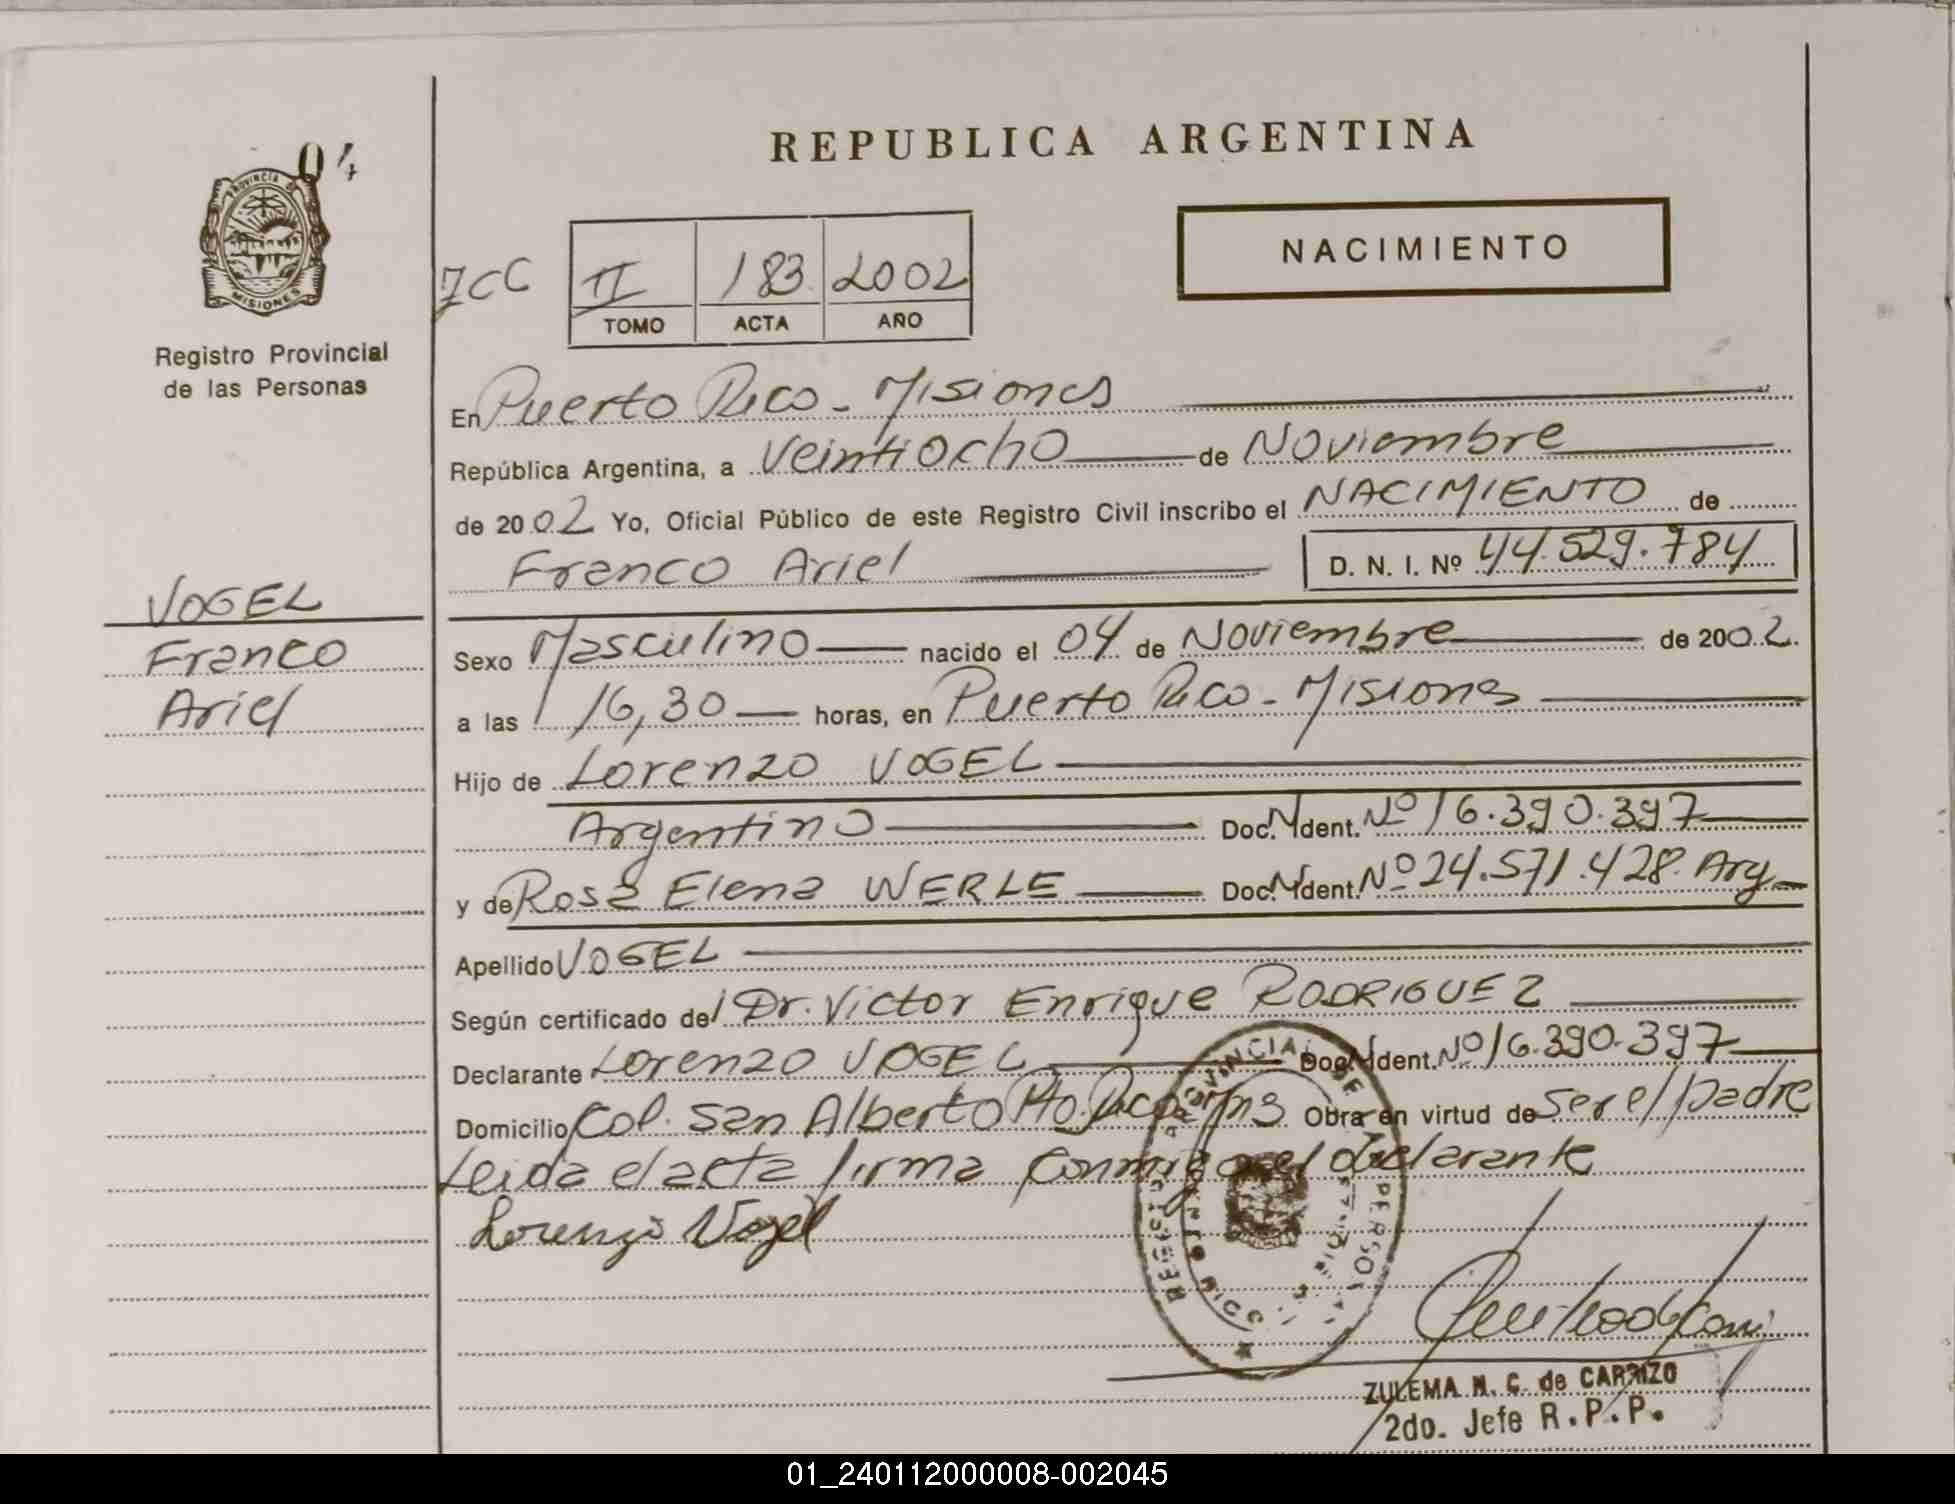 04
PROVINCIA DE
MISIONES
Registro Provincial
de las Personas
REPUBLICA ARGENTINA
NACIMIENTO
ICC II 183 2002
TOMO ACTA AÑO
En Puerto Rico - Misiones
República Argentina, a Veintiocho de Noviembre
de 2002 Yo, Oficial Público de este Registro Civil inscribo el NACIMIENTO de
Franco Ariel D. N. I. Nº 44.529.784
VOGEL
Franco
Ariel
Sexo Masculino nacido el 04 de Noviembre de 2002.
a las 16,30 horas, en Puerto Rico - Misiones
Hijo de Lorenzo VOGEL
Argentino Doc. Ident. Nº 16.390.397
y de Rosa Elena WERLE Doc. Ident. Nº 24.571.428. Arg
Apellido VOGEL
Según certificado del Dr. Victor Enrique RODRIGUEZ
Declarante Lorenzo VOGEL Doc. Ident. Nº 16.390.397
Domicilio Col. San Alberto Pto. Rico Mns Obra en virtud de ser el padre
Leida el acta firma conmigo el declarante
Lorenzo Vogel
ZULEMA N. C. de CARRIZO
2do. Jefe R.P.P.
01_240112000008-002045